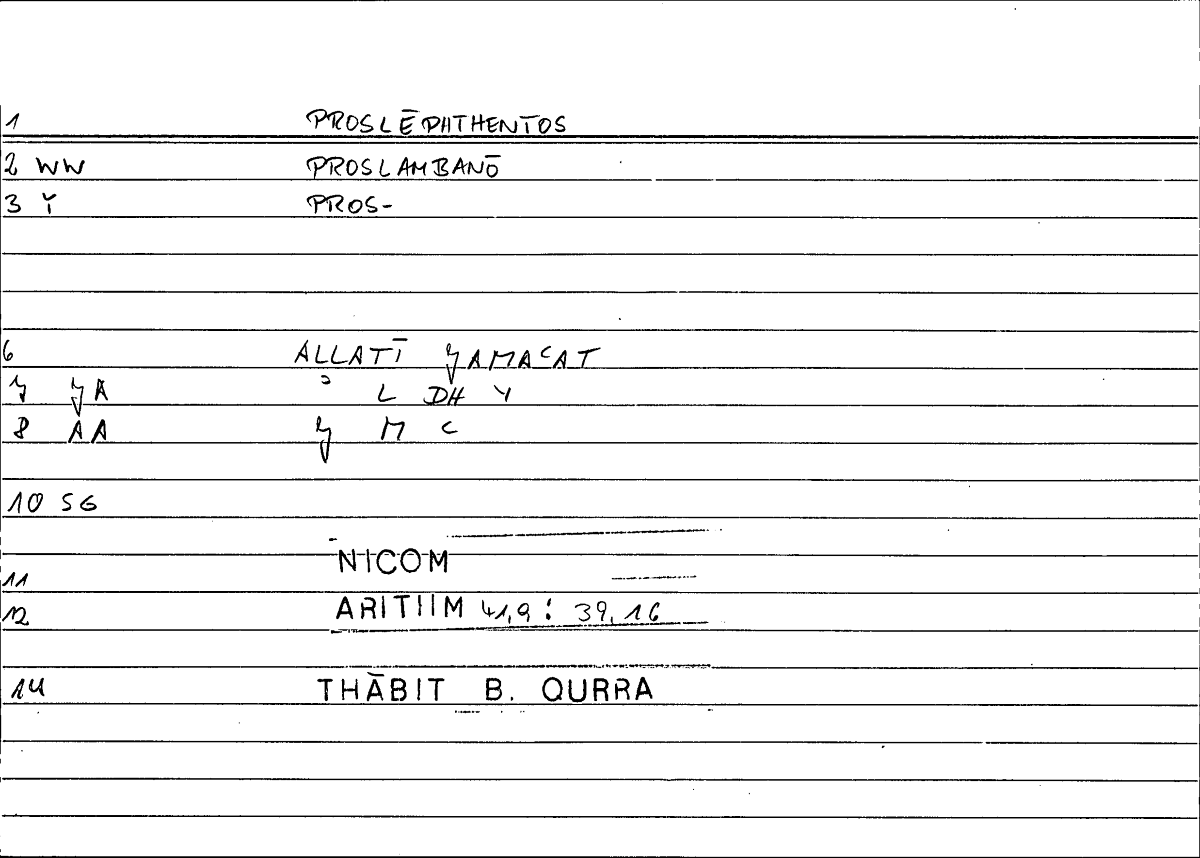 1 PROSLĒPHTHENTOS
2 WW PROSLAMBANŌ
3 Y PROS-
6 ALLATĪ ǦAMAʿAT
7 ǦA ʾ L DH Y
8 AA Ǧ M ʿ
10 SG
11 NICOM
12 ARITHM 41,9 : 39,16
14 THĀBIT B. QURRA